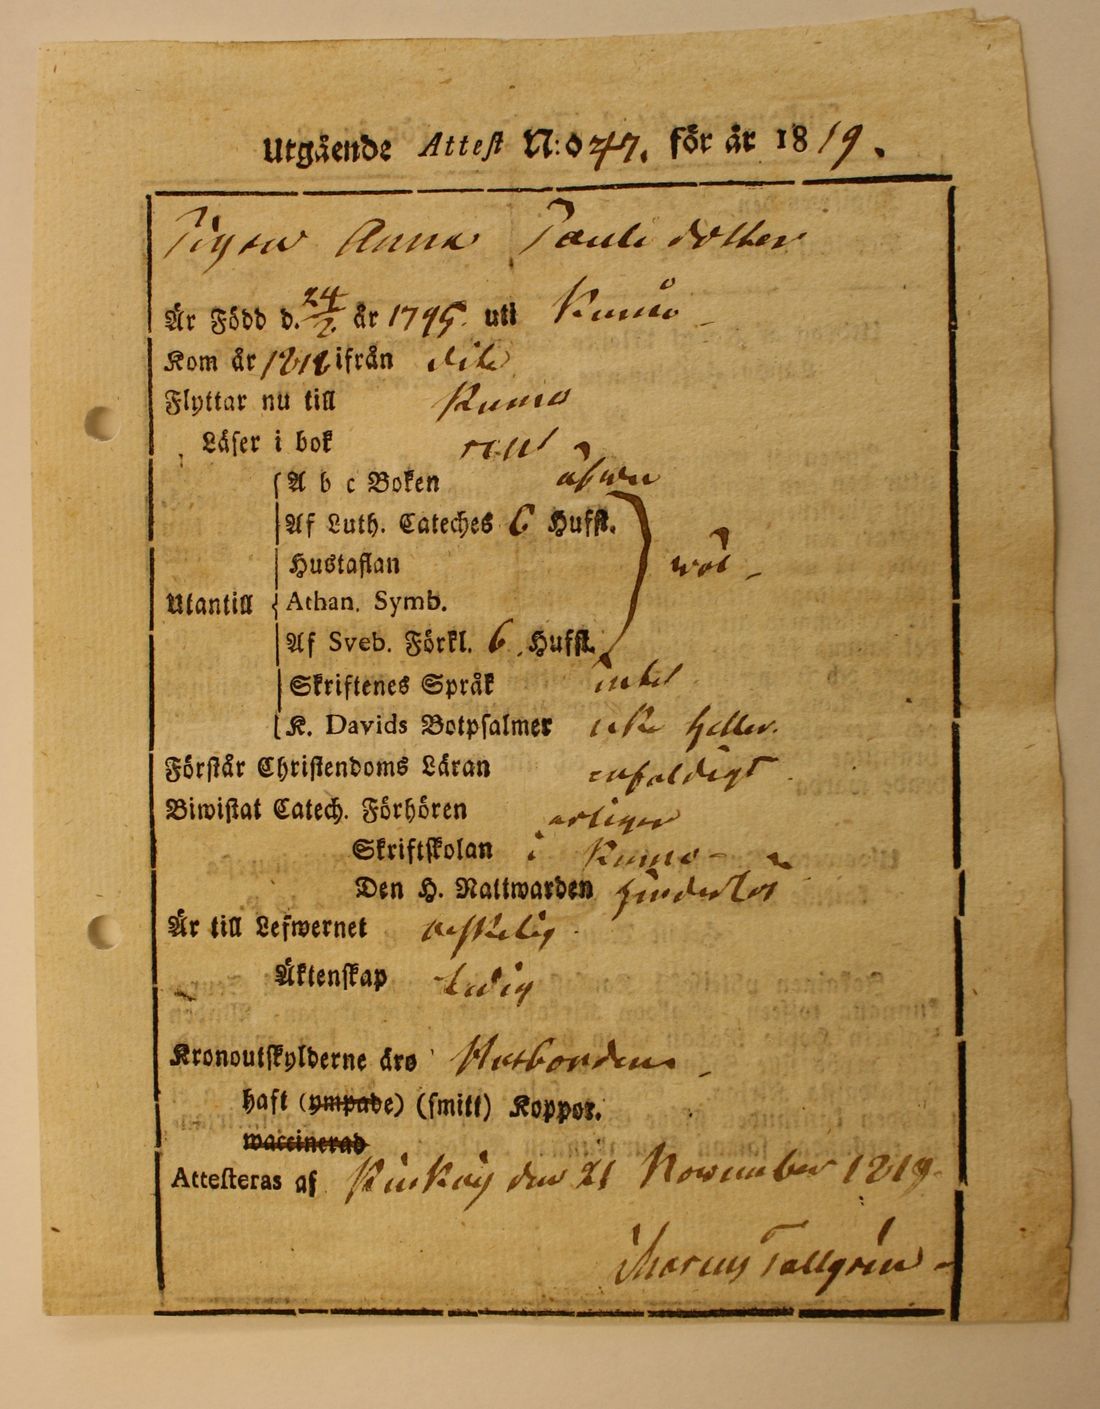 Utgående Attest N:o 47. för år 1819.
Pigan Anna Pauls dotter
Är Född d. 24/2. år 1795. uti Kumo
Kom år 1818 ifrån dito
Flyttar nu till Kumo
Läser i bok rent
A b c Boken äfwen
Af Luth. Cateches 6 Hufst.
Hustaflan wäl
Utantill Athan. Symb.
Af Sveb. Förkl. 6 Hufst.
Skriftenes Språk intet
K. Davids Botpsalmer icke heller.
Förstår Christendoms Läran enfaldigt
Biwistat Catech. Förhören årligen
Skriftskolan i Kumo
Den H. Nattwarden hinderlös
Är till Lefwernet
Äktenskap ledig
Kronoutskylderne äro
haft (ympade) (smitt) Koppor.
waccinerad
Attesteras af Kjukåij den 21 November 1819.
Tallgrén